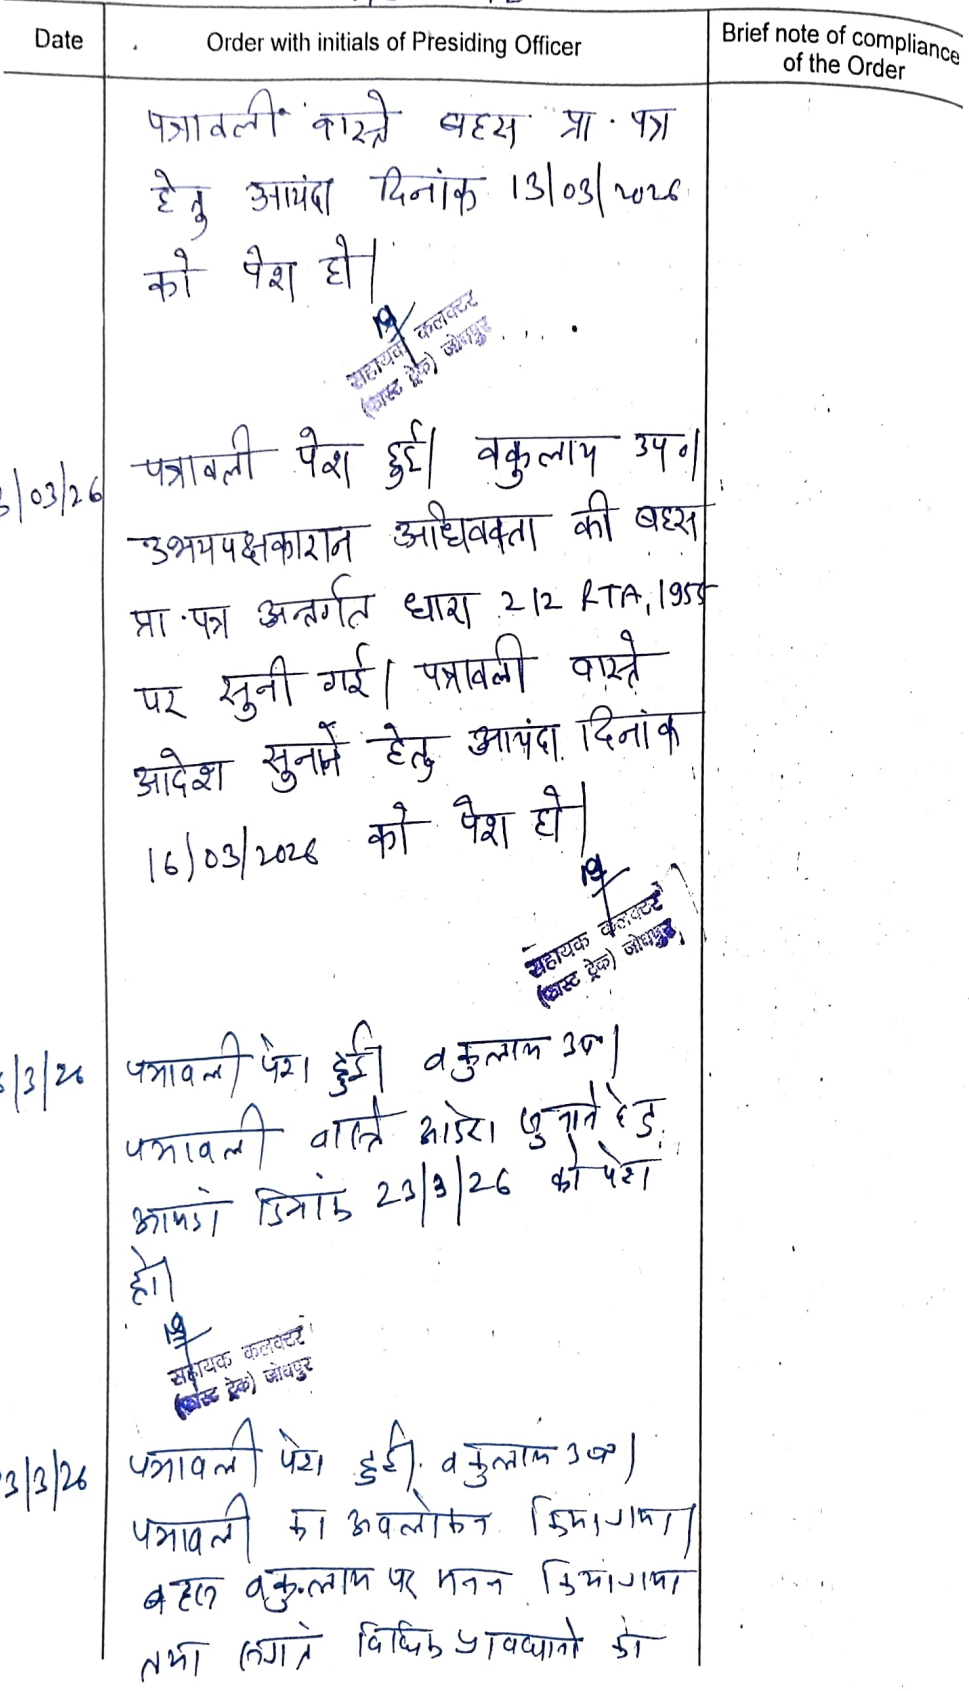 Date
Order with initials of Presiding Officer
Brief note of compliance
of the Order
पत्रावली वास्ते बहस प्रा. पत्र
हेतु आयंदा दिनांक 13/03/2026
को पेश हो।
सहायक कलक्टर
(फास्ट ट्रेक) जोधपुर
3/03/26
पत्रावली पेश हुई। वकुलाय उप०।
उभयपक्षकारान अधिवक्ता की बहस
प्रा.पत्र अन्तर्गत धारा 212 RTA, 1955
पर सुनी गई। पत्रावली वास्ते
आदेश सुनाने हेतु आयंदा दिनांक
16/03/2026 को पेश हो।
सहायक कलक्टर
(फास्ट ट्रेक) जोधपुर
6/3/26
पत्रावली पेश हुई। वकुलाय उप०।
पत्रावली वास्ते आदेश सुनाने हेतु
आयंदा दिनांक 23/3/26 को पेश
हो।
सहायक कलक्टर
(फास्ट ट्रेक) जोधपुर
3/3/26
पत्रावली पेश हुई। वकुलाय उप०।
पत्रावली का अवलोकन किया गया।
बहस वकुलाय पर मनन किया गया
तथा विधिक प्रावधानो को